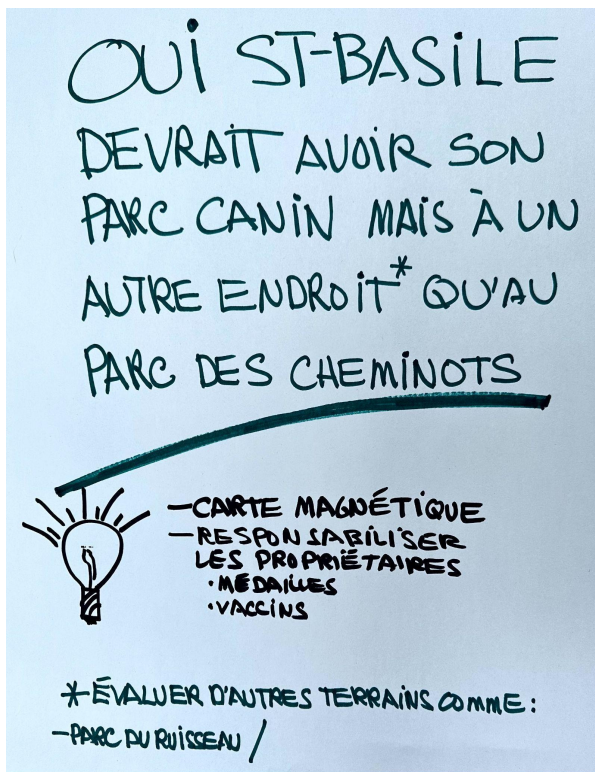 OUI ST-BASILE
DEVRAIT AVOIR SON
PARC CANIN MAIS À UN
AUTRE ENDROIT* QU'AU
PARC DES CHEMINOTS
- CARTE MAGNÉTIQUE
- RESPONSABILISER
LES PROPRIÉTAIRES
• MÉDAILLES
• VACCINS
* ÉVALUER D'AUTRES TERRAINS COMME :
- PARC DU RUISSEAU /